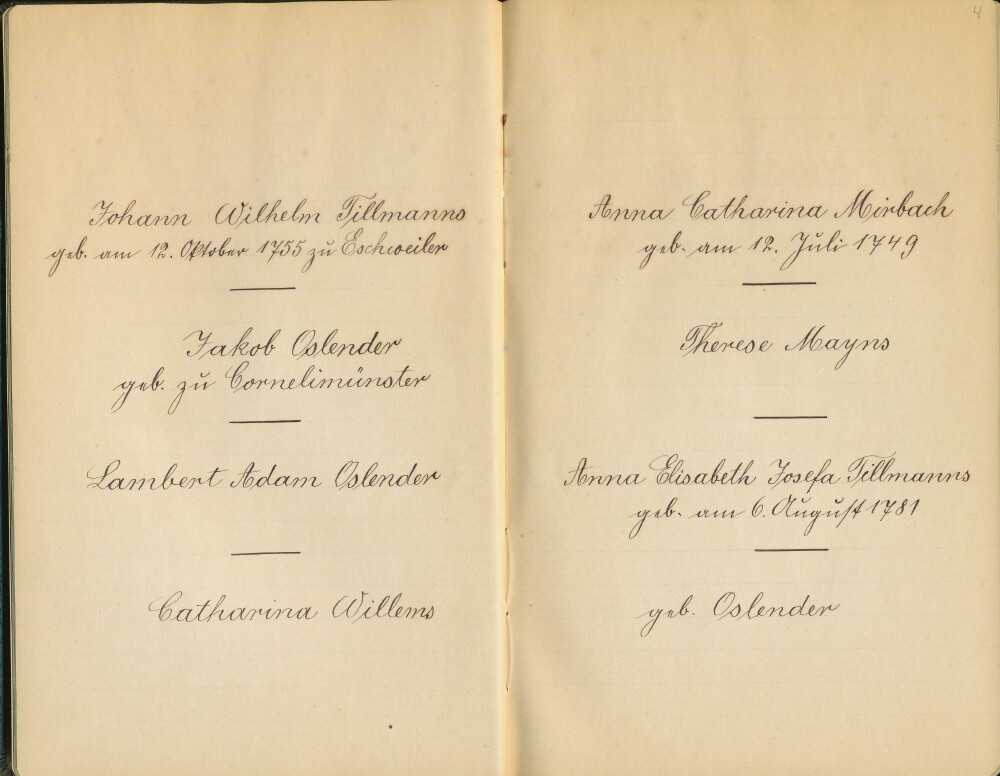 4
Johann Wilhelm Tillmanns
geb. am 12. Oktober 1755 zu Eschweiler
Jakob Oslender
geb. zu Cornelimünster
Lambert Adam Oslender
Catharina Willems
Anna Catharina Mirbach
geb. am 12. Juli 1749
Therese Mayns
Anna Elisabeth Josefa Tillmanns
geb. am 6. August 1781
geb. Oslender